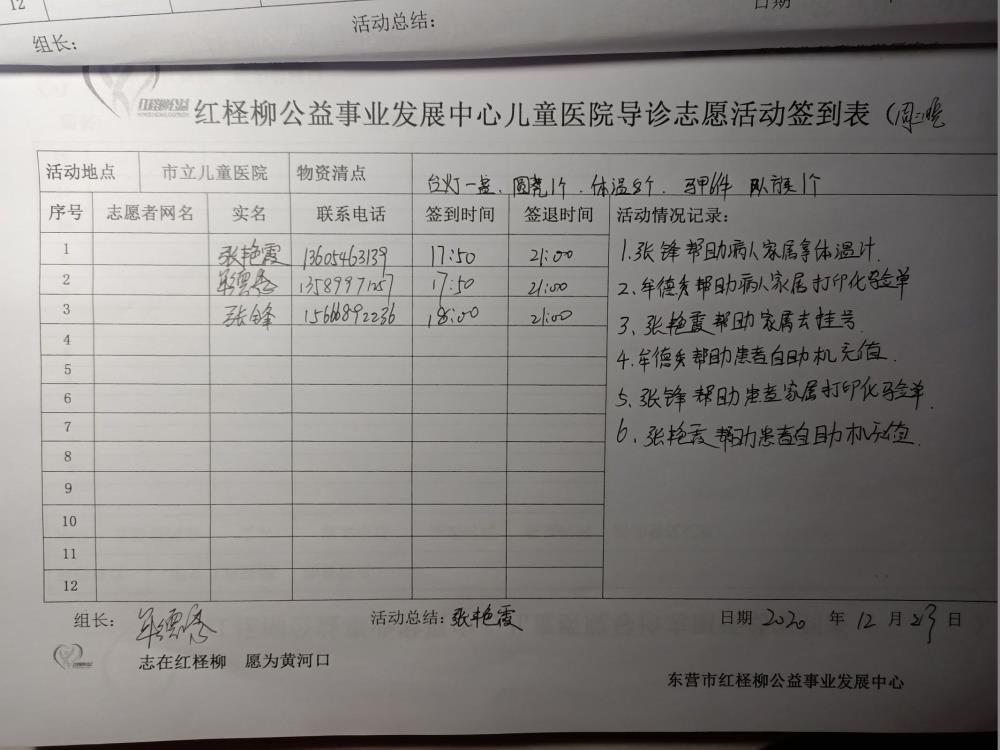 12
活动总结：
日期
组长：
红柽柳公益事业发展中心儿童医院导诊志愿活动签到表（周三晚
活动地点 市立儿童医院 物资清点 台灯一盏、圆凳1个．体温5个． 马甲6件 队旗1个
序号 志愿者网名 实名 联系电话 签到时间 签退时间 活动情况记录：
1 张艳霞 13605463139 17:50 21:00
2 牟德秀 17:50 21:00
3 张锋 15666892236 18:00 21:00
4
5
6
7
8
9
10
11
12
1.张锋帮助病人家属拿体温计．
2、牟德秀帮助病人家属打印化验单
3、张艳霞帮助家属去挂号
4.牟德秀帮助患者自助机充值．
5、张锋帮助患者家属打印化验单．
6、张艳霞帮助患者自助机充值．
组长：牟德秀 活动总结：张艳霞 日期 2020 年 12 月 23 日
志在红柽柳 愿为黄河口
东营市红柽柳公益事业发展中心